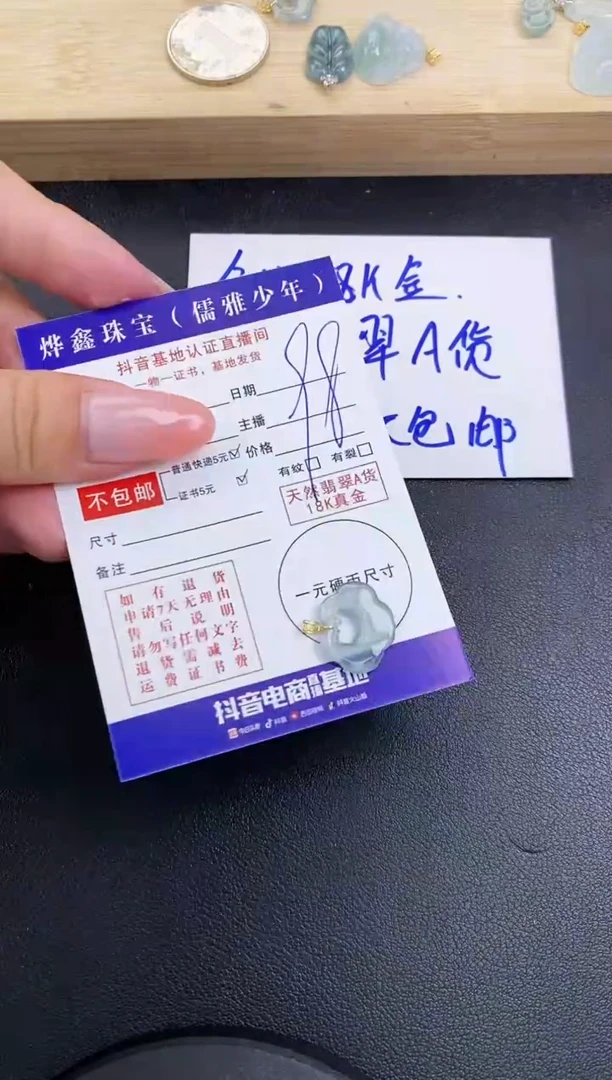 18K金.
翠A货
包邮
烨鑫珠宝（儒雅少年）
抖音基地认证直播间
一物一证书，基地发货
日期
主播
普通快递5元
价格
98
不包邮
证书5元
有纹
有裂
天然翡翠A货
18K真金
尺寸
备注
一元硬币尺寸
如有退货
申请7天无理由
售后说明
请勿写任何文字
退货需减去
运费证书费
抖音电商直播基地
今日头条
抖音
西瓜视频
抖音火山版